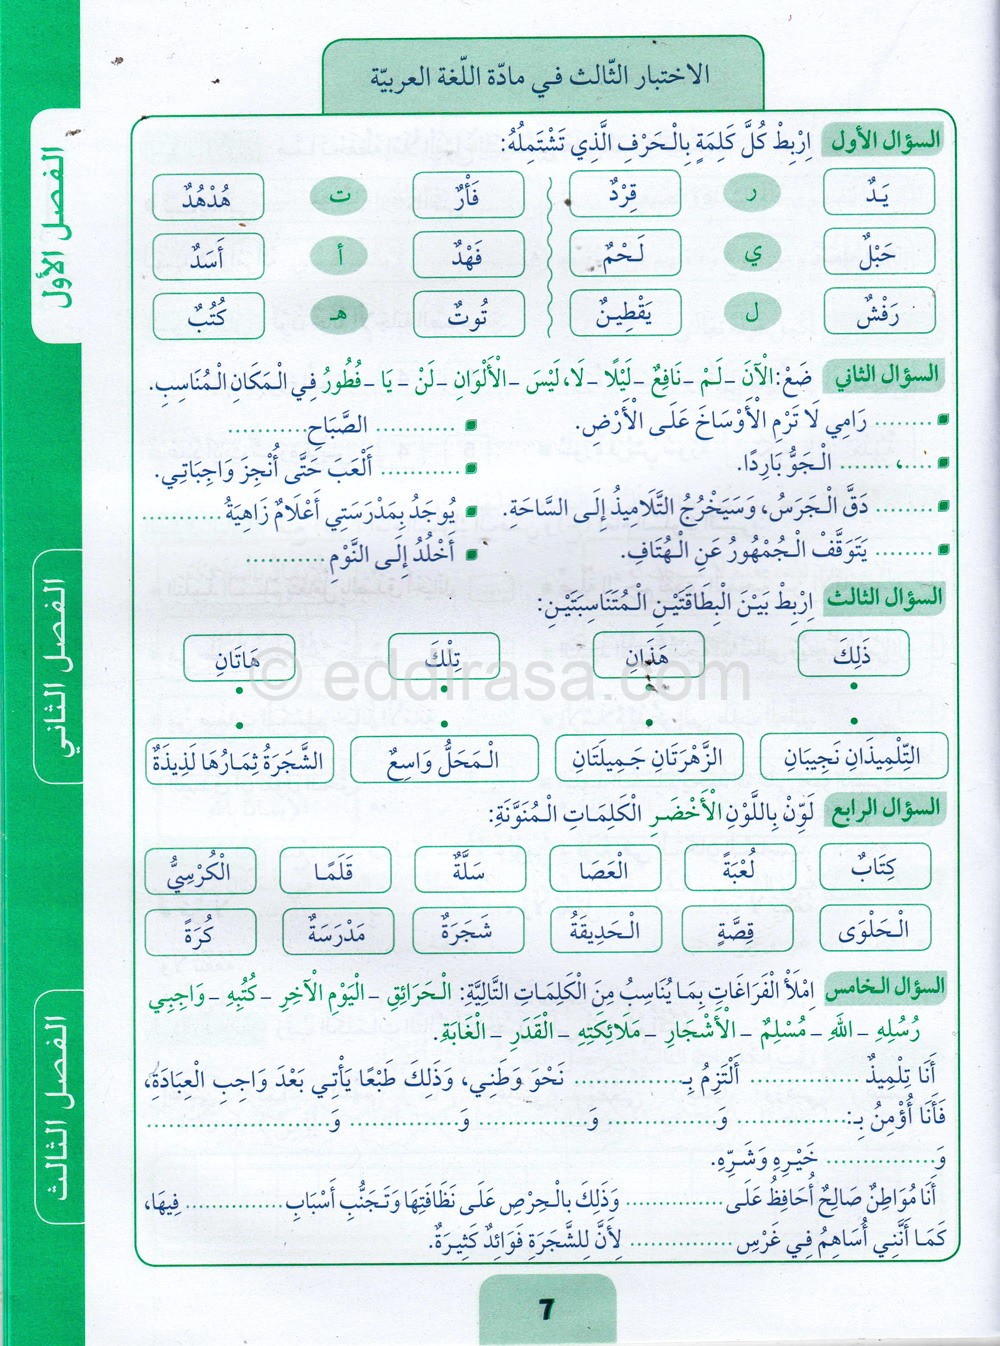 الاختبار الثّالث في مادّة اللّغة العربيّة
السؤال الأول اِرْبِطْ كُلَّ كَلِمَةٍ بِالْحَرْفِ الَّذِي تَشْتَمِلُهُ:
يَدٌ ر قِرْدٌ فَأْرٌ ت هُدْهُدٌ
حَبْلٌ ي لَحْمٌ فَهْدٌ أ أَسَدٌ
رَفْشٌ ل يَقْطِينٌ تُوتٌ هـ كُتُبٌ
السؤال الثاني ضَعْ: الْآنَ - لَمْ - نَافِعٌ - لَيْلًا - لَا، لَيْسَ - الْأَلْوَانِ - لَنْ - يَا - فُطُورُ فِي الْمَكَانِ الْمُنَاسِبِ.
......... رَامِي لَا تَرْمِ الْأَوْسَاخَ عَلَى الْأَرْضِ. ........... الصَّبَاحِ ...........
....، ....... الْجَوُّ بَارِدًا. ........... أَلْعَبَ حَتَّى أُنْجِزَ وَاجِبَاتِي.
......... دَقَّ الْجَرَسُ، وَسَيَخْرُجُ التَّلَامِيذُ إِلَى السَّاحَةِ. يُوجَدُ بِمَدْرَسَتِي أَعْلَامٌ زَاهِيَةُ ...........
......... يَتَوَقَّفْ الْجُمْهُورُ عَنِ الْهُتَافِ. أَخْلُدُ إِلَى النَّوْمِ ...........
السؤال الثالث اِرْبِطْ بَيْنَ الْبِطَاقَتَيْنِ الْمُتَنَاسِبَتَيْنِ:
ذَلِكَ هَذَانِ تِلْكَ هَاتَانِ
© eddirasa.com
التِّلْمِيذَانِ نَجِيبَانِ الزَّهْرَتَانِ جَمِيلَتَانِ الْمَحَلُّ وَاسِعٌ الشَّجَرَةُ ثِمَارُهَا لَذِيذَةٌ
السؤال الرابع لَوِّنْ بِاللَّوْنِ الْأَخْضَرِ الْكَلِمَاتِ الْمُنَوَّنَةِ:
كِتَابٌ لُعْبَةً الْعَصَا سَلَّةٌ قَلَمًا الْكُرْسِيُّ
الْحَلْوَى قِصَّةٍ الْحَدِيقَةُ شَجَرَةٌ مَدْرَسَةٌ كُرَةً
السؤال الخامس اِمْلَأْ الْفَرَاغَاتِ بِمَا يُنَاسِبُ مِنَ الْكَلِمَاتِ التَّالِيَّةِ: الْحَرَائِقِ - الْيَوْمِ الْآخِرِ - كُتُبِهِ - وَاجِبِي
رُسُلِهِ - اللهِ - مُسْلِمٌ - الْأَشْجَارِ - مَلَائِكَتِهِ - الْقَدَرِ - الْغَابَةِ.
أَنَا تِلْمِيذٌ .............. أَلْتَزِمُ بِـ............. نَحْوَ وَطَنِي، وَذَلِكَ طَبْعًا يَأْتِي بَعْدَ وَاجِبِ الْعِبَادَةِ،
فَأَنَا أُؤْمِنُ بِـ:.............. وَ.............. وَ.............. وَ.............. وَ......................
وَ.............. خَيْرِهِ وَشَرِّهِ.
أَنَا مُوَاطِنٌ صَالِحٌ أُحَافِظُ عَلَى ............. وَذَلِكَ بِالْحِرْصِ عَلَى نَظَافَتِهَا وَتَجَنُّبِ أَسْبَابِ ............. فِيهَا،
كَمَا أَنَّنِي أُسَاهِمُ فِي غَرْسِ .............. لِأَنَّ لِلشَّجَرَةِ فَوَائِدٌ كَثِيرَةٌ.
7
الفصل الأول
الفصل الثاني
الفصل الثالث